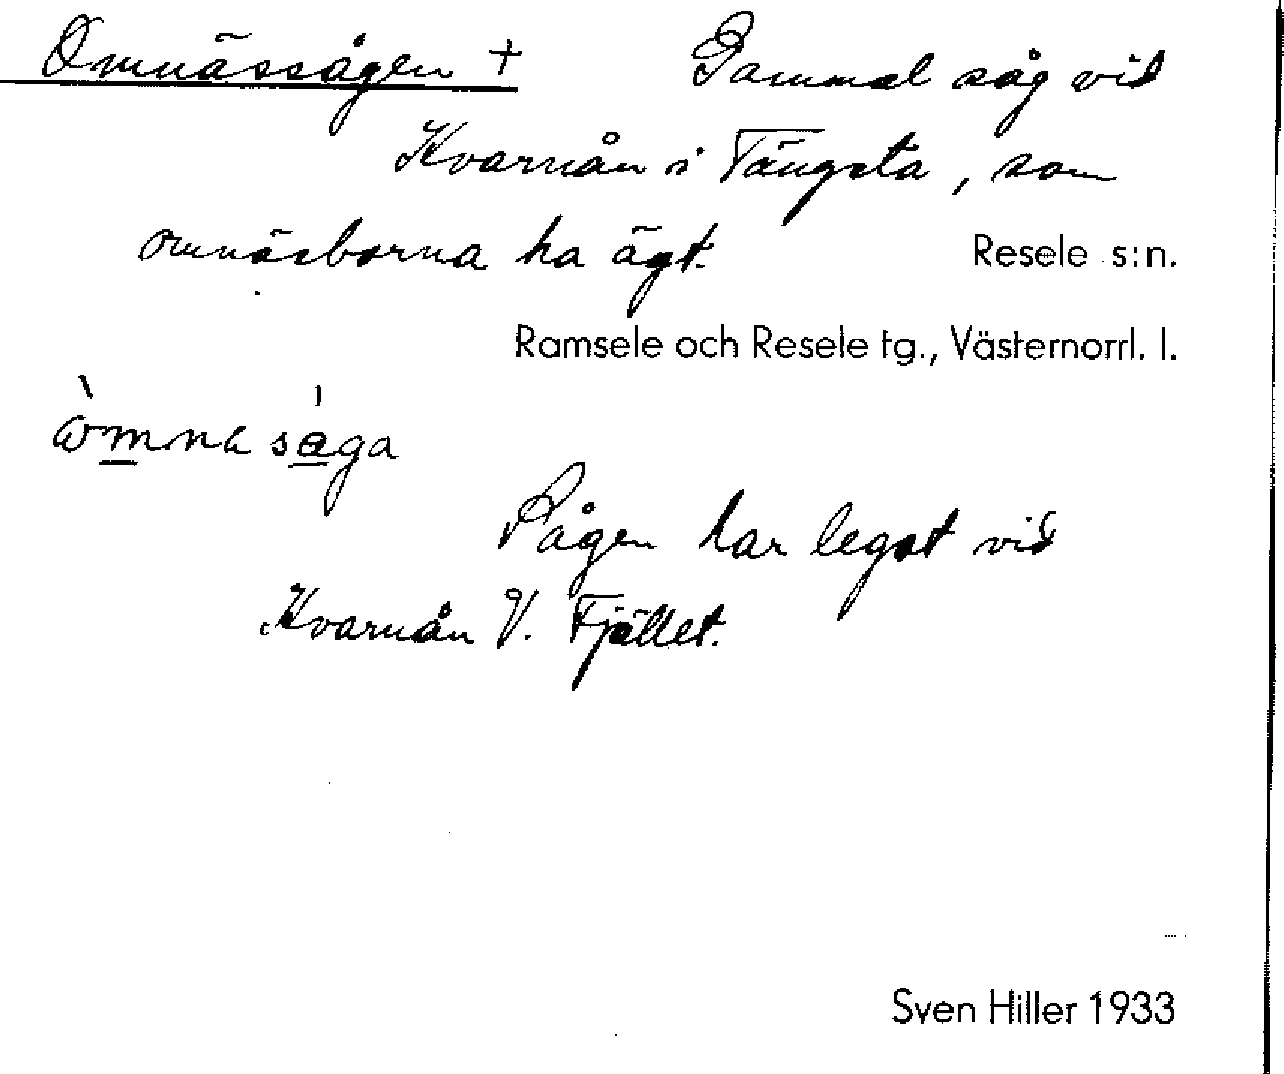 Omnässågen + Gammal såg vid
Kvarnån i Tängsta, som
omnäsborna ha ägt. Resele s:n.
Ramsele och Resele tg., Västernorrl. l.
Sågen har legat vid
Kvarnån V. Fjället.
Sven Hiller 1933